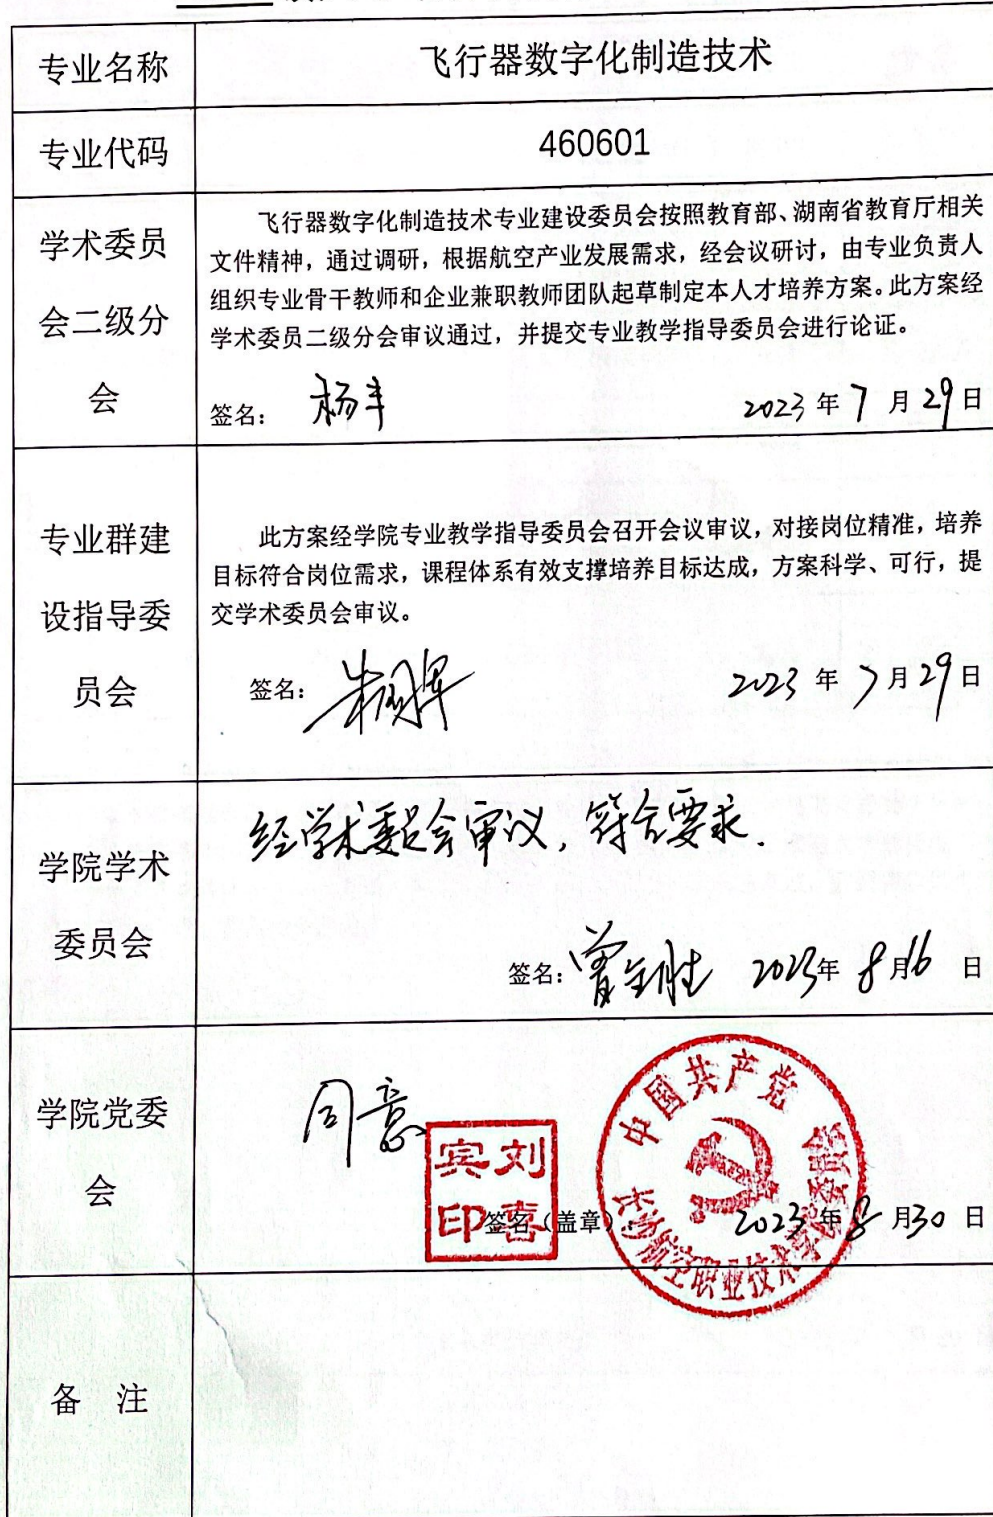 专业名称
飞行器数字化制造技术
专业代码
460601
学术委员
会二级分
会
飞行器数字化制造技术专业建设委员会按照教育部、湖南省教育厅相关
文件精神，通过调研，根据航空产业发展需求，经会议研讨，由专业负责人
组织专业骨干教师和企业兼职教师团队起草制定本人才培养方案。此方案经
学术委员二级分会审议通过，并提交专业教学指导委员会进行论证。
签名： 杨丰 2023 年 7 月 29 日
专业群建
设指导委
员会
此方案经学院专业教学指导委员会召开会议审议，对接岗位精准，培养
目标符合岗位需求，课程体系有效支撑培养目标达成，方案科学、可行，提
交学术委员会审议。
签名： 2023 年 7 月 29 日
学院学术
委员会
经学术委员会审议，符合要求.
签名: 曾全胜 2023 年 8 月 16 日
学院党委
会
同意
刘喜
宾印
中国共产党
航空职业技术学院委员会
签名（盖章）: 2023 年 8 月 30 日
备 注